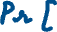 Pr [